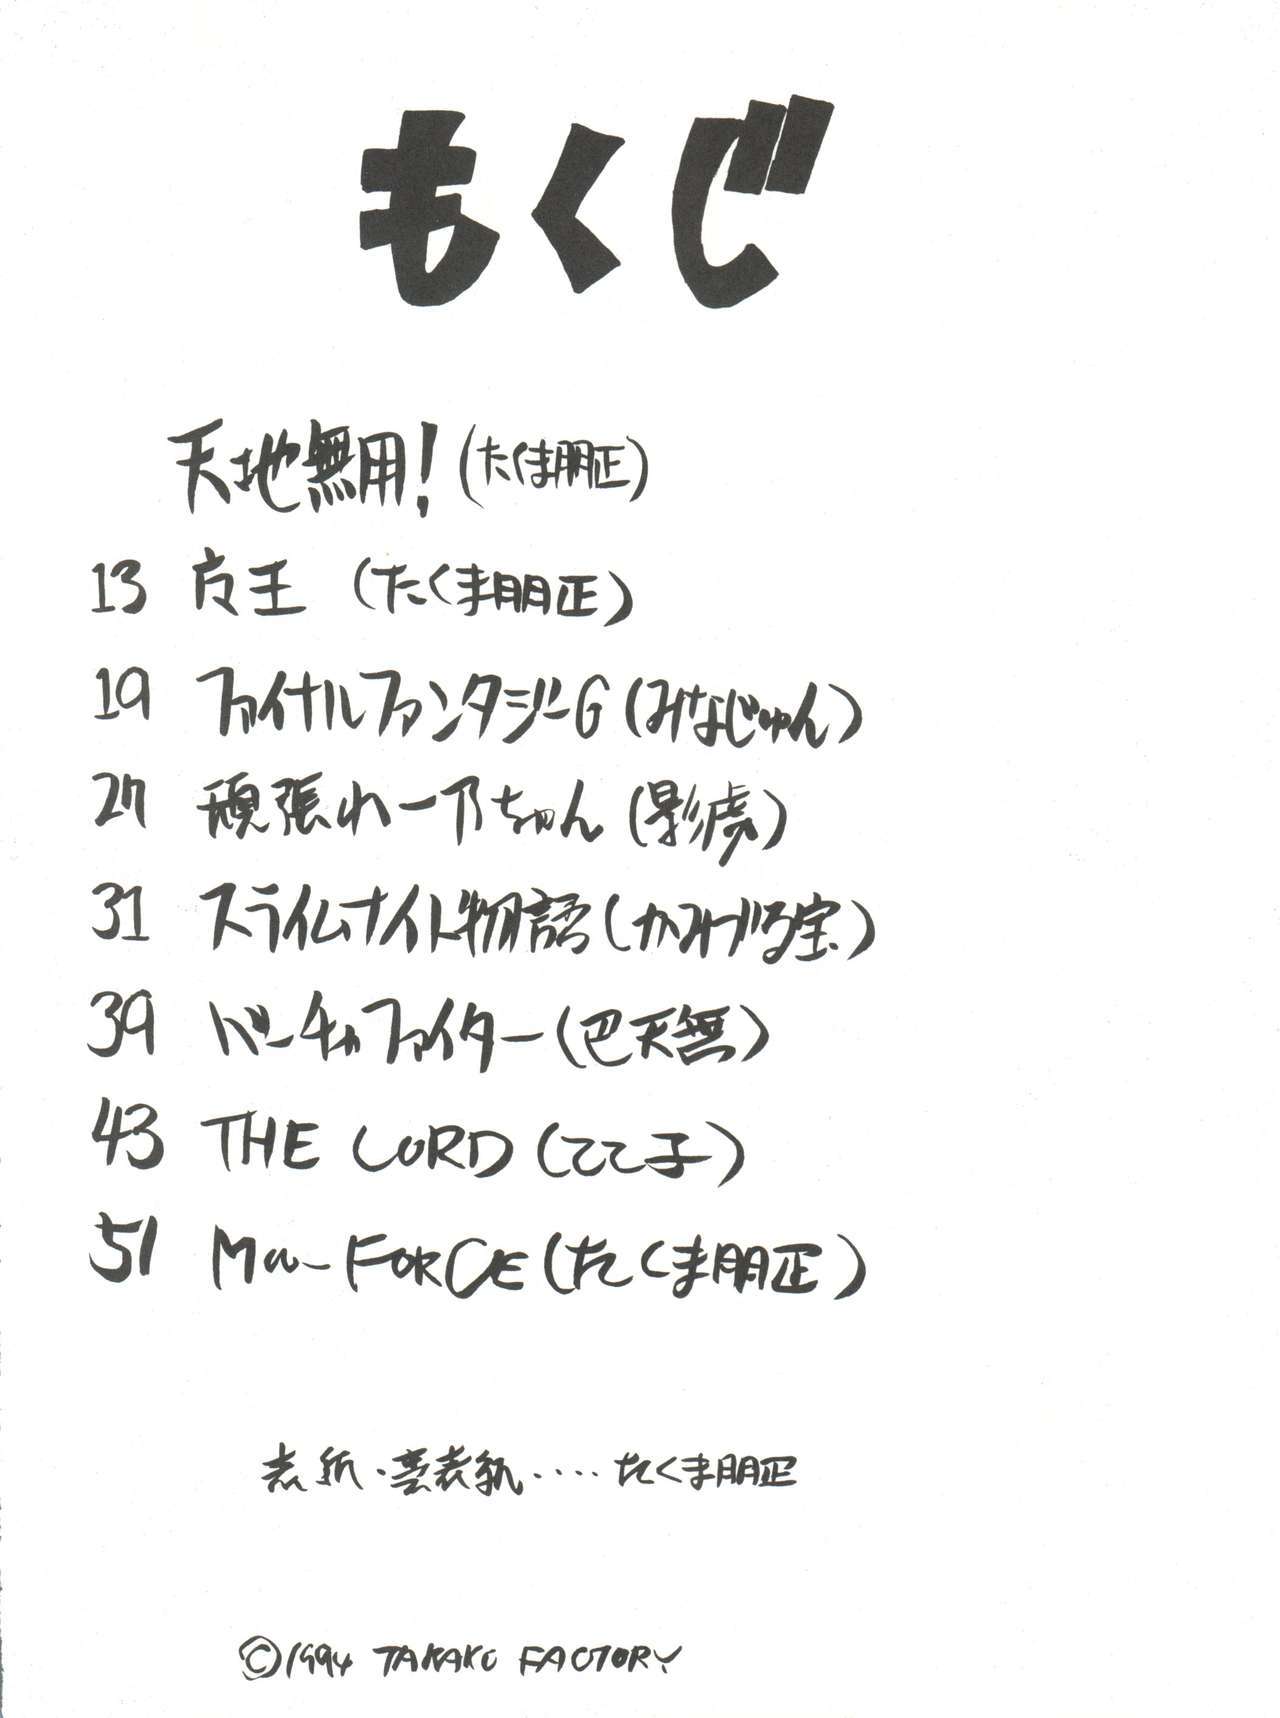 もくじ
天地無用！(たくま朋正)
13 王 (たくま朋正)
19 ファイナルファンタジーG (みなじゅん)
27 頑張れ一乃ちゃん (影虎)
31 スライムナイト物語 (かみづる宝)
39 バーチャファイター (巴天無)
43 THE LORD (てて子)
51 Mu-FORCE (たくま朋正)
表紙・裏表紙‥‥たくま朋正
©1994 TAKAKO FACTORY